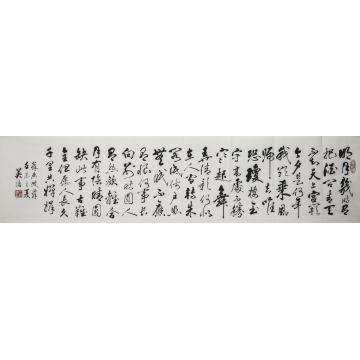 明月幾時有
把酒问青天
不知天上宫阙
今夕是何年
我欲乘風
歸去唯
恐瓊楼玉
宇高處不勝
寒起舞
弄清影何似
在人间转朱
阁低绮户照
無眠不應
有恨何事長
向别時圓
人有悲歡離合
月有陰晴圓
缺此事古難
全但愿人長久
千里共嬋娟